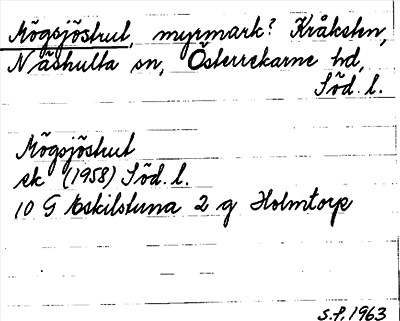 Mögsjöstrut, myrmark? Kråksten,
Näshulta sn, Österrekarne hd,
Söd. l.
Mögsjöstrut
ek (1958) Söd. l.
10 G Eskilstuna 2 g Holmtorp
S.P. 1963